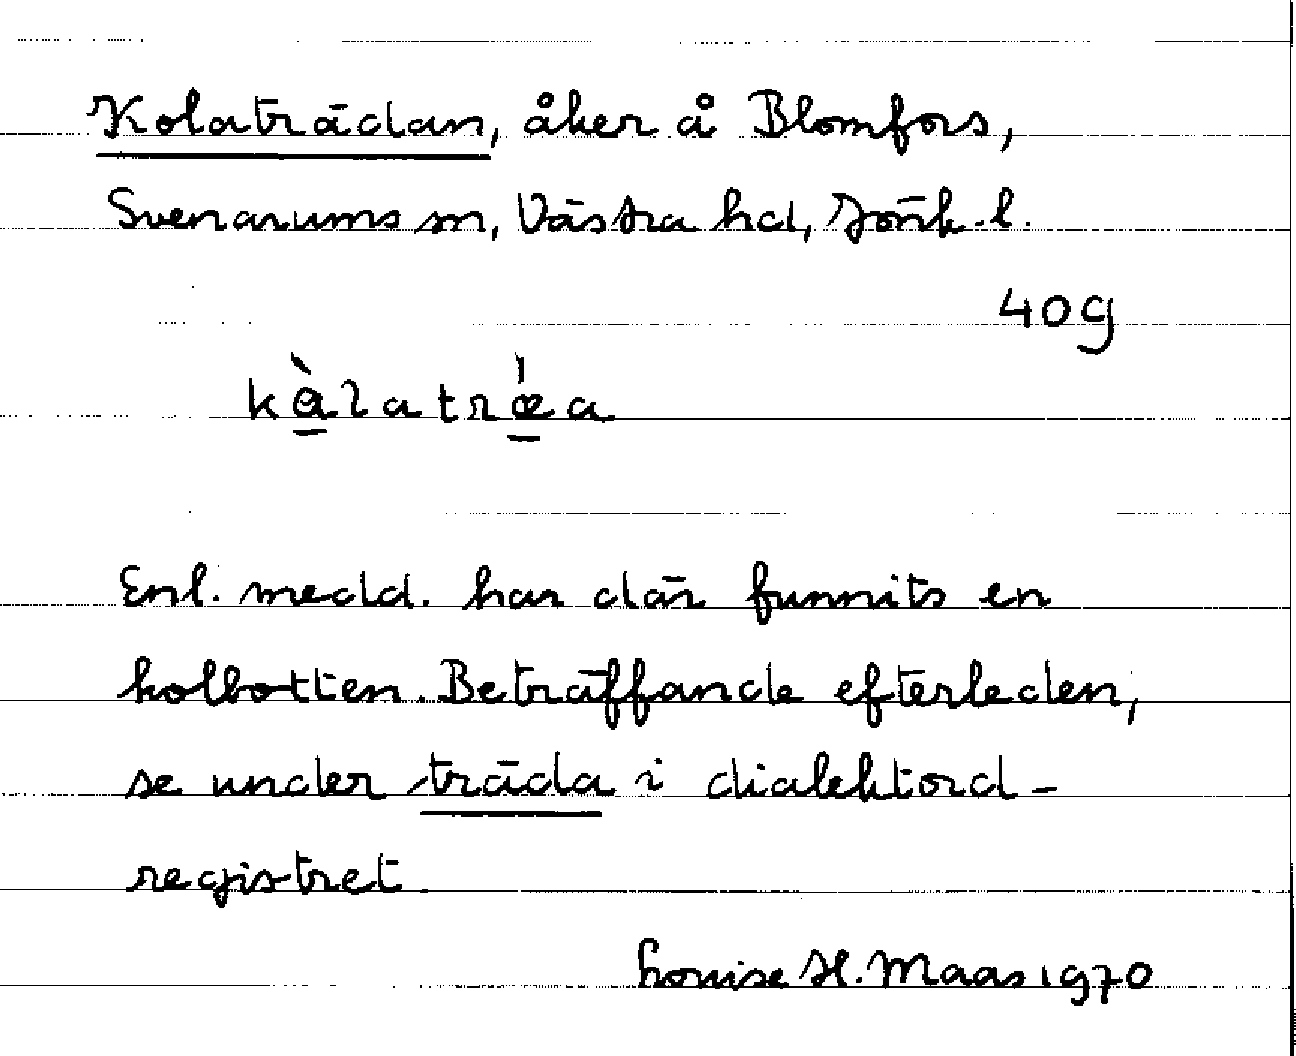 Kolaträdan, åker å Blomfors,
Svenarums sn, Västra hd, Jönk. l.
40g
kå̀latrǽa
Enl. medd. har där funnits en
kolbotten. Beträffande efterleden,
se under träda i dialektord-
registret.
Louise H. Maas 1970